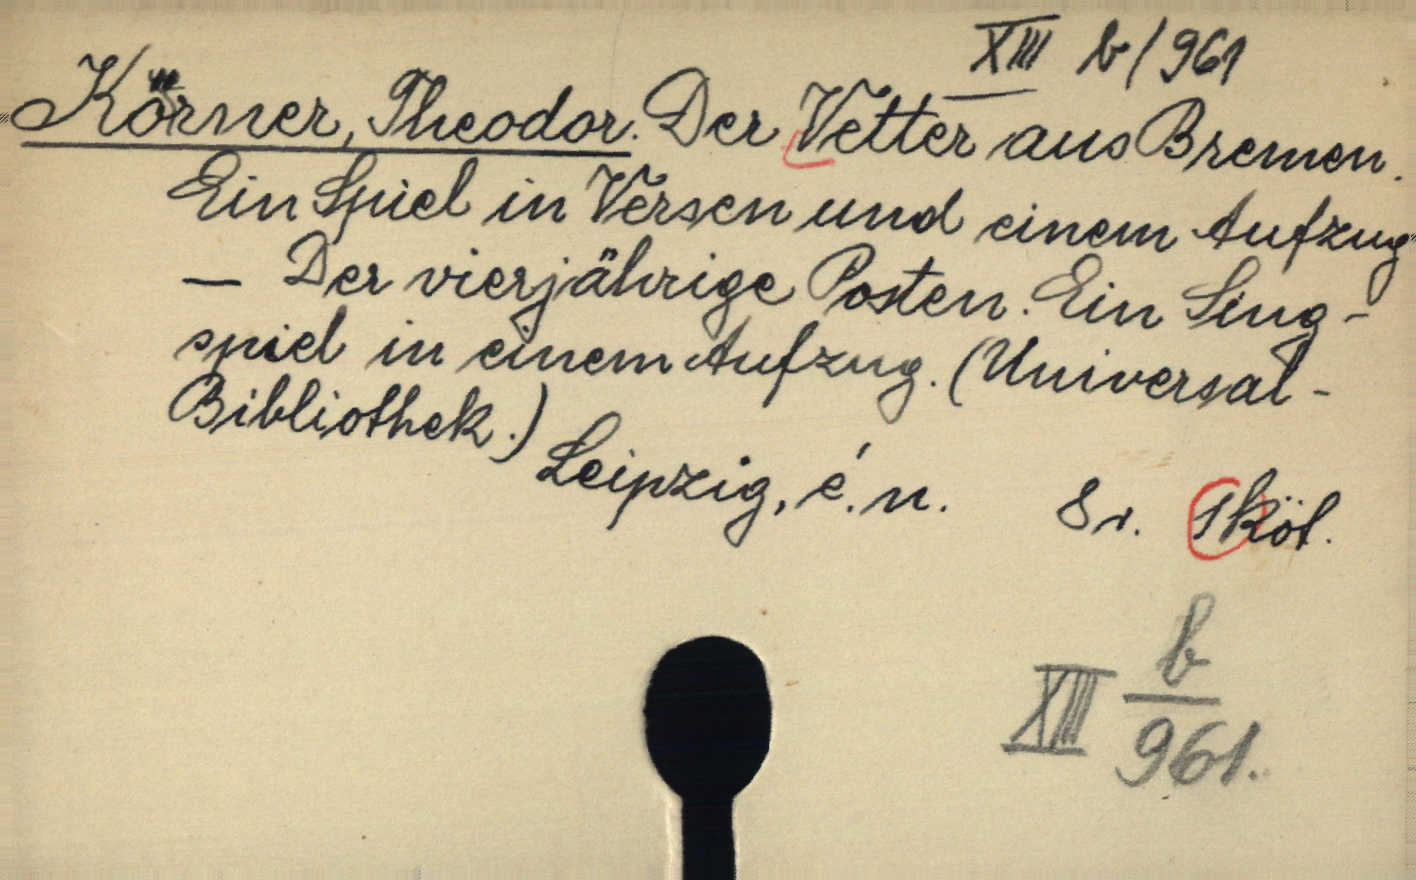 XIII b/961
Körner, Theodor. Der Vetter aus Bremen.
Ein Spiel in Versen und einem Aufzug
— Der vierjährige Posten. Ein Sing-
spiel in einem Aufzug. (Universal-
Bibliothek.)
Leipzig, é. n. 8r. 1 köt.
XIII b
961.